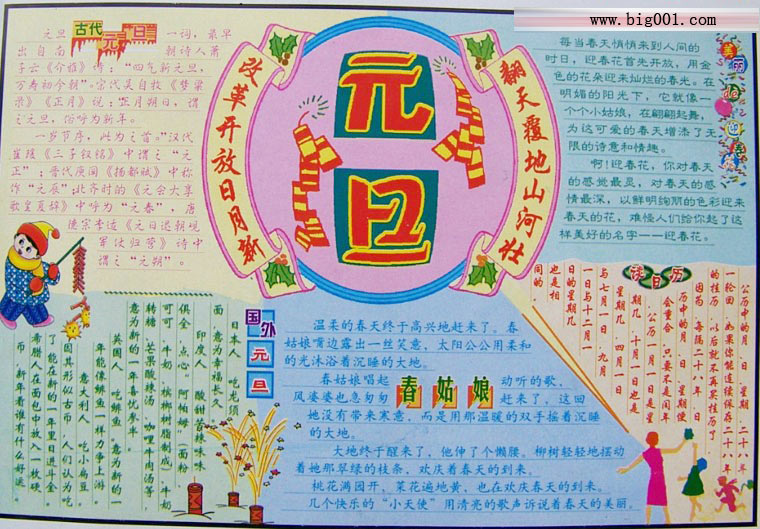 www.big001.com
元旦 古代元旦 一词，最早
出自南 朝诗人萧
子云《介雅》诗："四气新元旦，
万寿初今朝"。宋代吴自牧《梦粱
录》《正月》说："正月朔日，谓
之元旦，俗呼为新年。
一岁节序，此为之首。"汉代
崔瑗《三子钗铭》中谓之"元
正"；晋代庾阐《扬都赋》中称
作"元辰"；北齐时的《元会大享
歌皇夏辞》中呼为"元春"，唐
德宗李适《元日退朝观
军仗归营》诗中
谓之"元朔"。
改革开放日月新
元旦
翻天覆地山河壮
美丽的迎春花
每当春天悄悄来到人间的
时日，迎春花首先开放，用金
色的花朵迎来灿烂的春光。在
明媚的阳光下，它就像一
个个小姑娘，在翩翩起舞，
为这可爱的春天增添了无
限的诗意和情趣。
啊！迎春花，你对春天
的感觉最灵，对春天的感
情最深，以鲜明绚丽的色彩迎来
春天的花，难怪人们给你起了这
样美好的名字——迎春花。
国外元旦
日本人 吃龙须
面，意为幸福长久。
印度人 酸甜苦辣味味
俱全，点心 阿帕姆（面粉、
可可、牛奶、槟榔树脂制成）、牛奶
转糖、芒果酸辣汤、咖哩牛肉汤等，
意为新的一年喜忧参半。
英国人 吃鲱鱼。意为新的一
年能像鲱鱼一样力争上游
意大利人 吃小扁豆。
因其形似古币，人们认为吃
了能在新的一年里日进斗金
希腊人在面包中放入一枚硬
币，新年看谁有什么好运。
温柔的春天终于高兴地赶来了。春
姑娘嘴边露出一丝笑意，太阳公公用柔和
的光沐浴着沉睡的大地。
春姑娘唱起 春姑娘 动听的歌，
风婆婆也急匆匆 赶来了，这回
她没有带来寒意，而是用那温暖的双手摇着沉睡
的大地。
大地终于醒来了，他伸了个懒腰。柳树轻轻地摆动
着她那翠绿的枝条，欢庆着春天的到来。
桃花满园开，菜花遍地黄，也在欢庆春天的到来。
几个快乐的"小天使"用清亮的歌声诉说着春天的美丽。
谈日历
公历中的月、日、星期 二十八年
一轮回。如果你能连续保存二十八年
的挂历，以后就不再买挂历了
因为，每隔二十八年，日
历中的月、日、星期便
会重合。只要是不闰年
公历一月一日是星
期几，十月一日也是
星期几。四月一日
与七月一日，九月
一日与十二月一
日的星期几
也是相
同的。